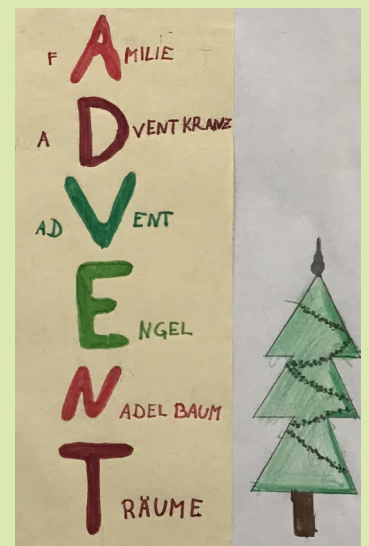 FAMILIE
ADVENTKRANZ
ADVENT
ENGEL
NADEL BAUM
TRÄUME